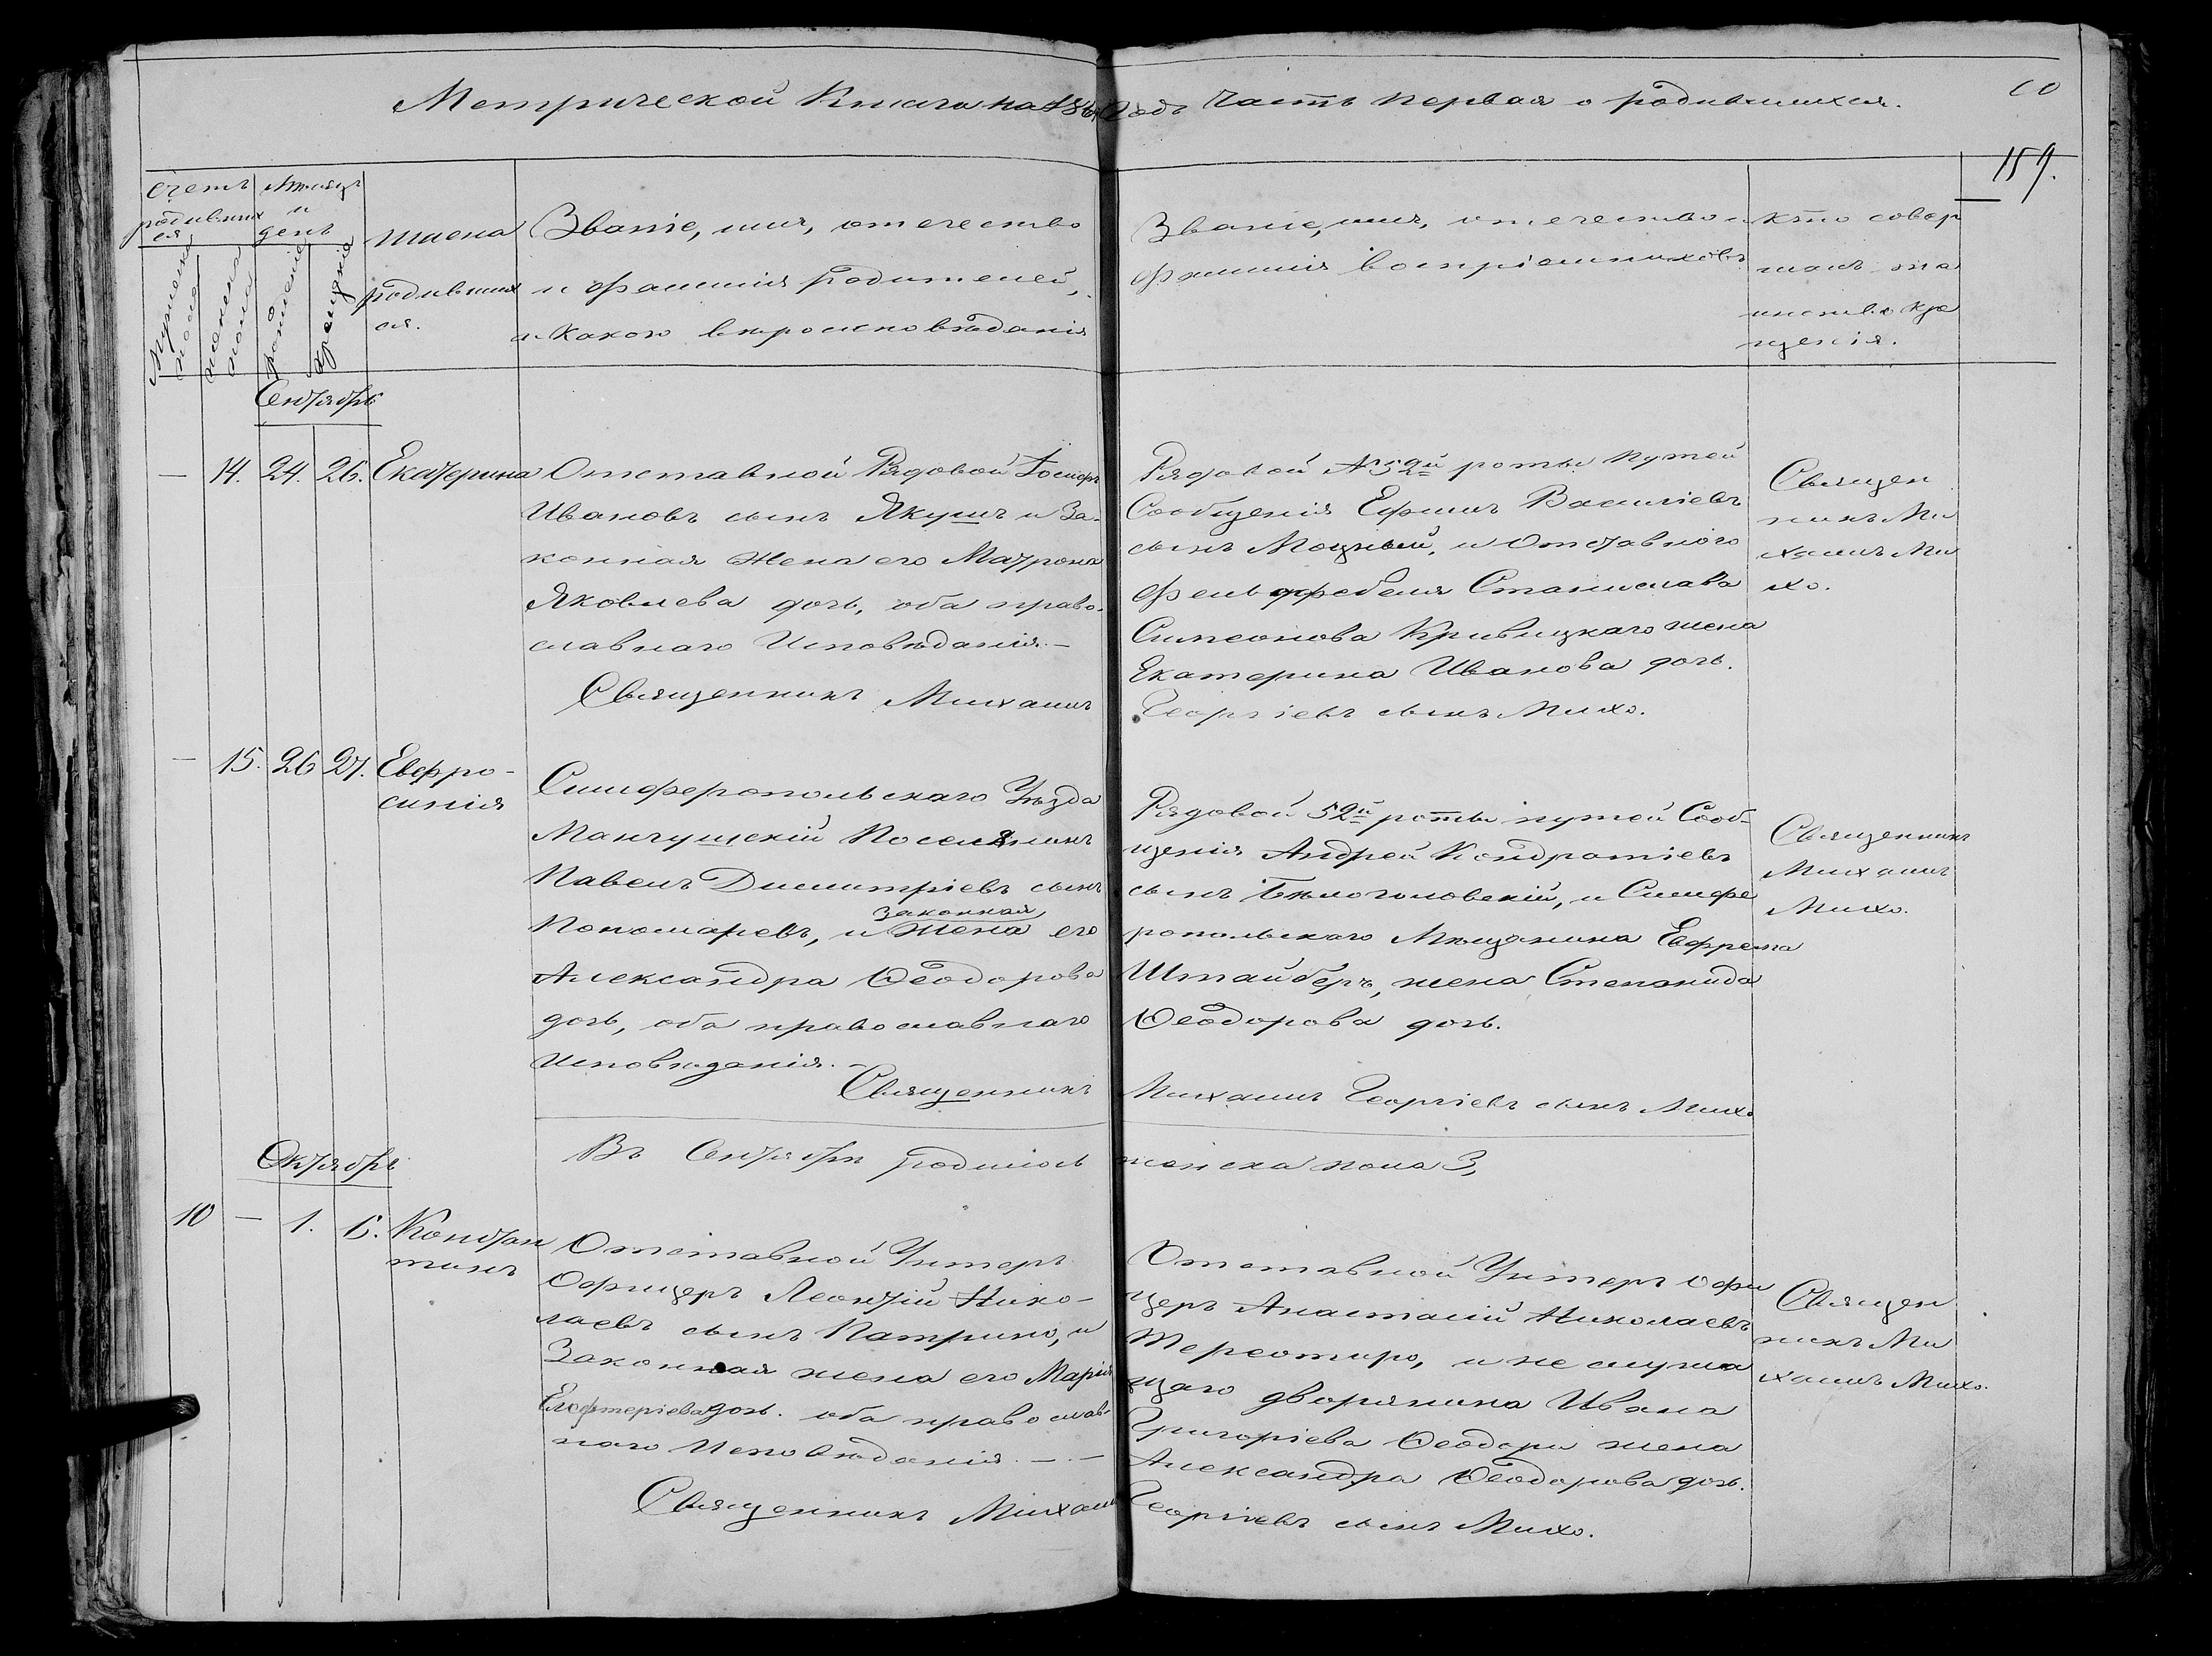 Метрической Книги на 186 Годъ часть первая о родившихся.
60
159.
счетъ
родивших
ся
Мужеска
пола
женска
пола
Месяцъ
и
день
рожденія
крещенія
имена
родивших
ся.
Званіе, имя, отечество
и фамилія родителей,
и какого вѣроисповѣданія
Званіе, имя, отечество и
фамилія воспріемниковъ
кто совер
шалъ та
инство кре
щенія.
Сентябрь
— 14. 24. 26. Екатерина
Отставной Рядовой Іосифъ
Ивановъ сынъ Якушъ и За-
конная Жена его Матрона
Яковлева дочь, оба право-
славнаго Исповѣданія. —
Священникъ Михаилъ
Рядовой №52й роты путей
Сообщенія Ефимъ Василіевъ
сынъ Моцный, и Отставного
Фельдфебеля Станислава
Симеонова Кривицкаго жена
Екатерина Иванова дочь.
Георгіевъ сынъ Михо.
Священ
никъ Ми
хаилъ Ми
хо.
— 15. 26 27. Евфро-
синія
Симферопольскаго Уѣзда
Мангушскій Поселянинъ
Павелъ Димитріевъ сынъ
Пономаревъ, и законная жена его
Александра Ѳеодорова
дочь, оба православнаго
исповѣданія. —
Священникъ
Рядовой 52й роты путей Сооб-
щенія Андрей Кондратіевъ
сынъ Бѣлоголовскій, и Симфе
ропольскаго Мѣщанина Евфрема
Штайберъ, жена Степанида
Ѳеодорова дочь.
Михаилъ Георгіевъ сынъ Михо
Священникъ
Михаилъ
Михо.
Въ Сентябрѣ родилось женска пола 3,
Октябрь
10 — 1. 6. Констан
тинъ
Отставной Унтеръ
Офицеръ Леонтій Нико-
лаевъ сынъ Патрино, и
Законная жена его Марія
Елефтеріева дочь. оба православ-
наго Исповѣданія. — . —
Священникъ Михаилъ
Отставной Унтеръ Офи
церъ Анастасій Николаевъ
и не служа
щаго дворянина Ивана
Григоріева Ѳеодори жена
Александра Ѳеодорова дочь.
Георгіевъ сынъ Михо.
Священ
никъ Ми
хаилъ Михо.